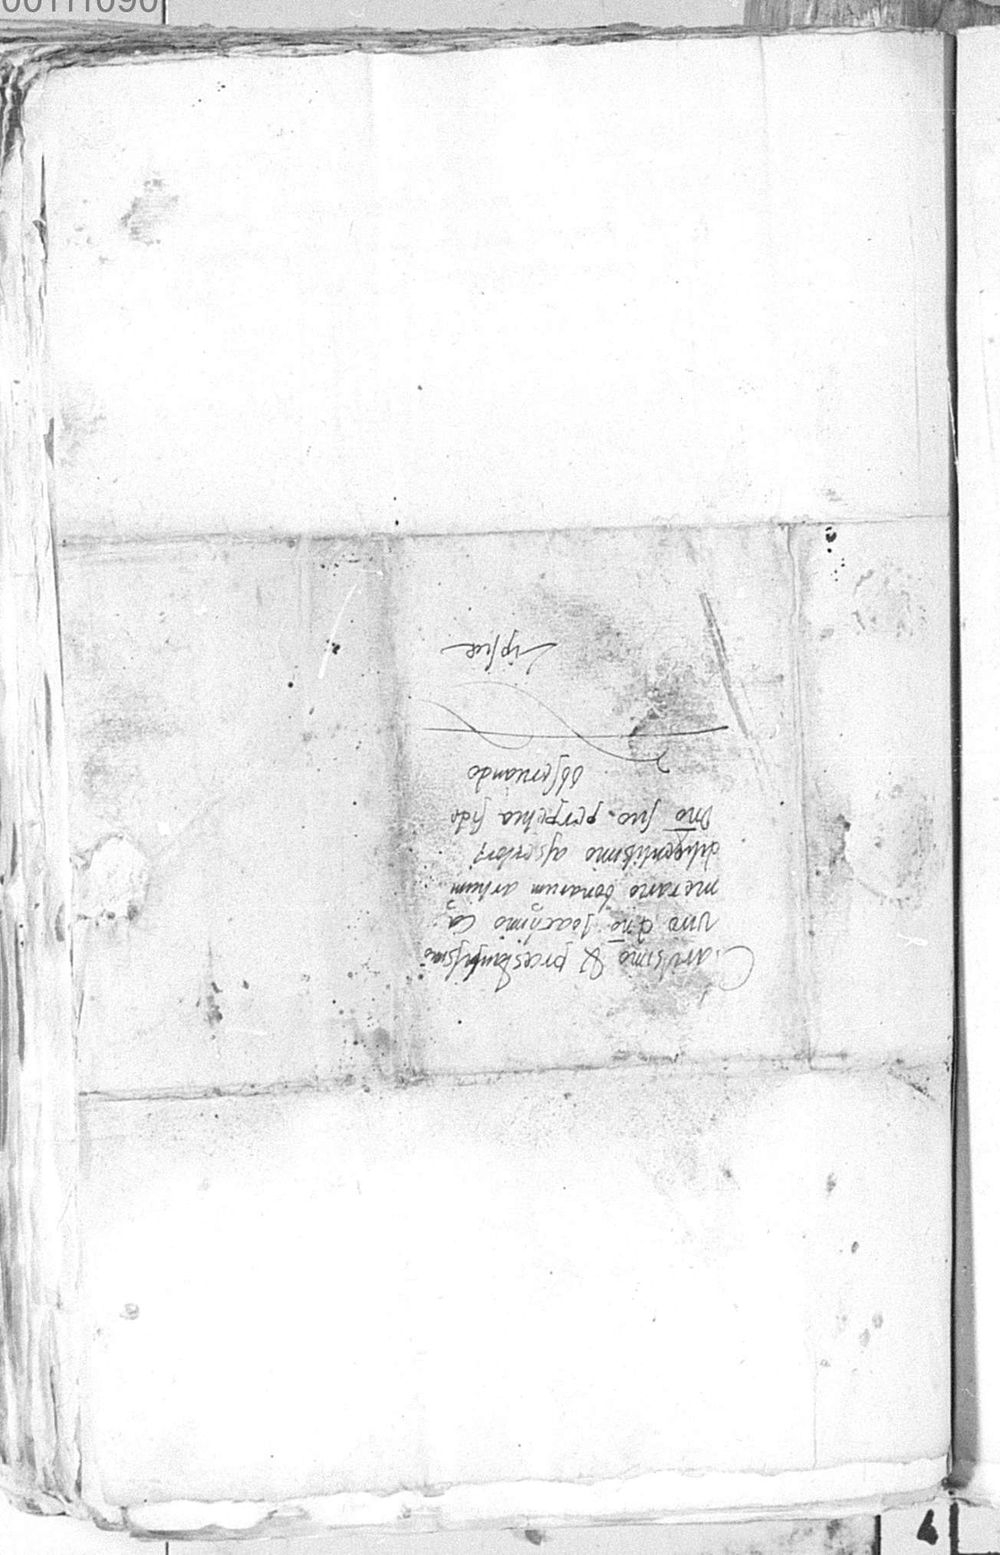 00111090
Clarissimo & præstantissimo
viro dno Joachimo Ca,,
merario bonarum artium
diligentissimo assertori
Dno suo perpetua fide
observando
Lipsiæ